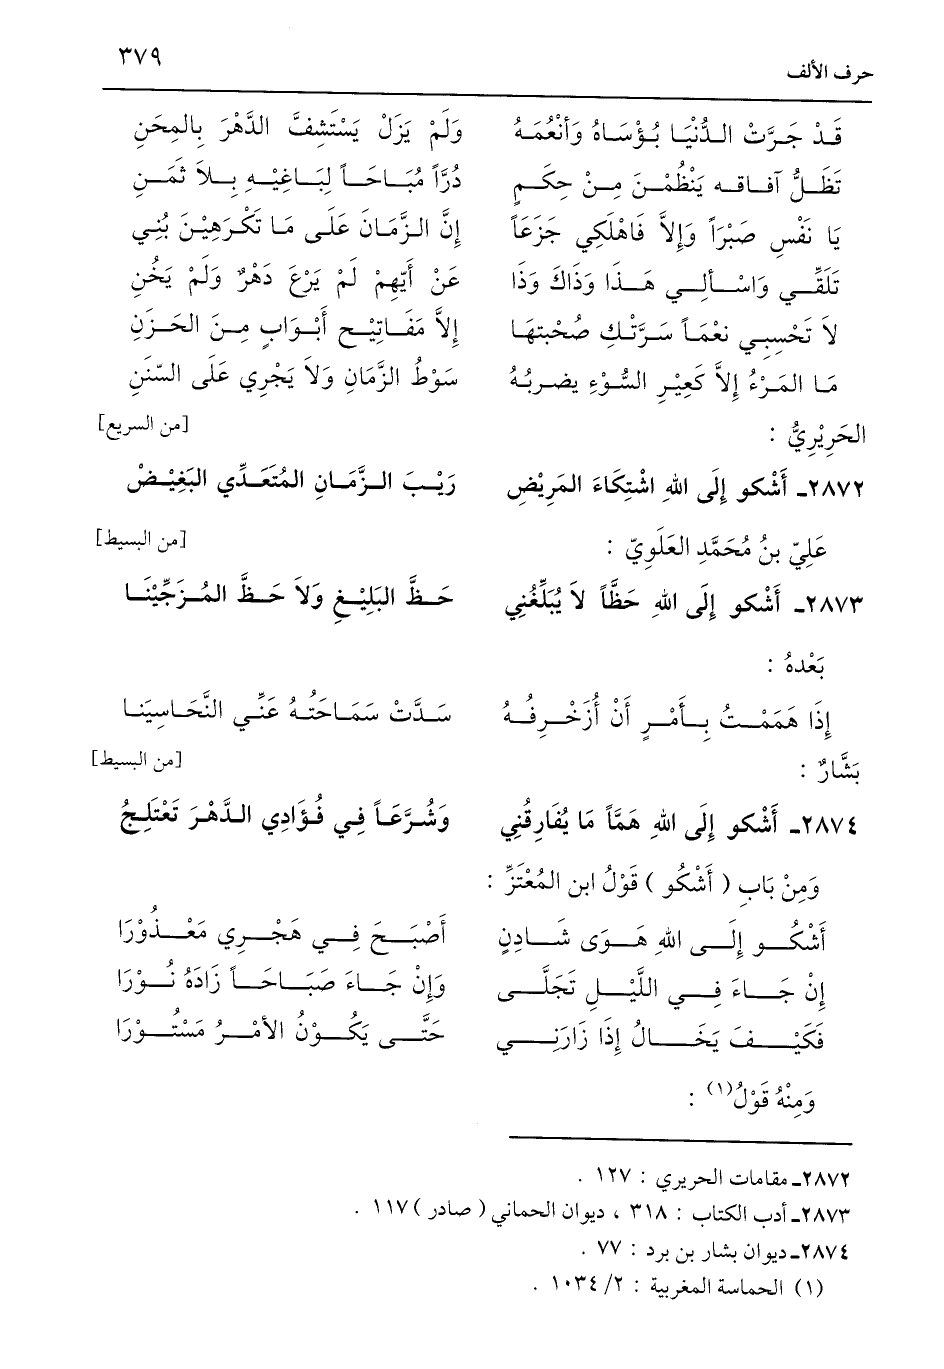 حرف الألف ٣٧٩
قَدْ جَرَّتْ الدُّنْيَا بُؤْسَاهُ وَأَنْعُمَهُ وَلَمْ يَزَلْ يَسْتَشِفَّ الدَّهْرَ بِالمِحَنِ
تَظَلُّ آفَاقه يَنْظُمْنَ مِنْ حِكَمٍ دُرَّاً مُبَاحَاً لِبَاغِيْهِ بِلاَ ثَمَنِ
يَا نَفْسِ صَبْرَاً وَإِلاَّ فَاهْلَكِي جَزَعَاً إِنَّ الزَّمَانَ عَلَى مَا تَكْرَهِيْنَ بُنِي
تَلَقِّي وَاسْأَلِي هَذَا وَذَاكَ وَذَا عَنْ أَيّهِمْ لَمْ يَرْعَ دَهْرٌ وَلَمْ يَخُنِ
لاَ تَحْسِبِي نعْمَاً سَرَّتْكِ صُحْبتهَا إِلاَّ مَفَاتِيْح أَبْوَابٍ مِنَ الحَزَنِ
مَا المَرْءُ إِلاَّ كَعِيْرِ السُّوْءِ يضربُهُ سَوْطُ الزَّمَانِ وَلاَ يَجْرِي عَلَى السّنَنِ
الحَرِيْرِيُّ : [من السريع]
٢٨٧٢ـ أَشْكو إِلَى اللهِ اشْتِكَاءَ المَرِيْضِ رَيْبَ الزَّمَانِ المُتَعَدِّي البَغِيْضْ
عَلِيّ بنُ مُحَمَّدِ العَلَوِيّ : [من البسيط]
٢٨٧٣ـ أَشْكو إِلَى اللهِ حَظَّاً لاَ يُبَلِّغُنِي حَظَّ البَلِيْغِ وَلاَ حَظَّ المُزَجِّيْنَا
بَعْدهُ :
إِذَا هَمَمْتُ بِأَمْرٍ أَنْ أُزَخْرِفُهُ سَدَّتْ سَمَاحَتُهُ عَنِّي النَّحَاسِيَنا
بَشَّارٌ : [من البسيط]
٢٨٧٤ـ أَشْكو إِلَى اللهِ هَمَّاً مَا يُفَارِقُنِي وَشُرَّعَاً فِي فُؤَادِي الدَّهْرَ تَعْتَلِجُ
وَمِنْ بَابِ ( أَشْكُو ) قَوْلُ ابن المُعْتَزِّ :
أَشْكُو إِلَى اللهِ هَوَى شَادِنٍ أَصْبَحَ فِي هَجْرِي مَعْذُوْرَا
إِنْ جَاءَ فِي اللَّيْلِ تَجَلَّى وَإِنْ جَاءَ صَبَاحَاً زَادَهُ نُوْرَا
فَكَيْفَ يَخَالُ إِذَا زَارَنِي حَتَّى يَكُوْنُ الأَمْرُ مَسْتُوْرَا
وَمِنْهُ قَوْلُ(١) :
٢٨٧٢ـ مقامات الحريري : ١٢٧ .
٢٨٧٣ـ أدب الكتاب : ٣١٨ ، ديوان الحماني ( صادر ) ١١٧ .
٢٨٧٤ـ ديوان بشار بن برد : ٧٧ .
(١) الحماسة المغربية : ٢/ ١٠٣٤ .